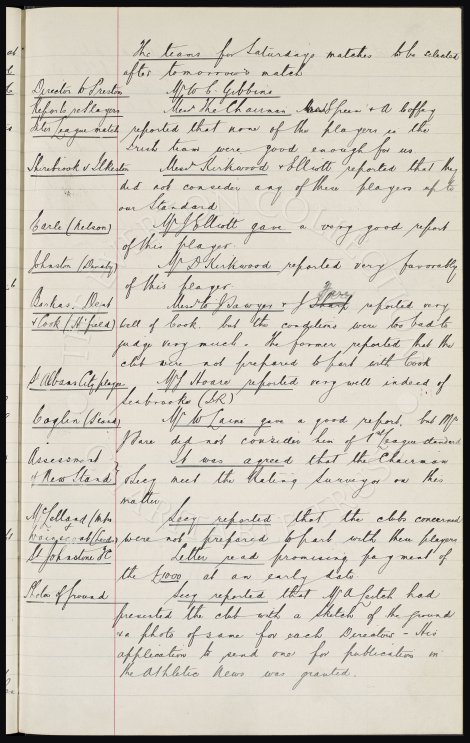 The teams for Saturdays matches to be selected
after tomorrow's match
Director to Preston Mr W. C. Gibbins
Reports re Players Messrs The Chairman Green & A Coffey
Inter League match reported that none of the players in the
Irish team were good enough for us.
Shirebrook v Ilkeston Messrs Kirkwood & Elliott reported that they
did not consider any of these players up to
our Standard
Earle (Nelson) Mr J Elliott gave a very good report
of this player.
Johnston (Barnsley) Mr D. Kirkwood reported very favorably
of this player.
Barkas, Dent Messrs W Sawyer & J reported very
& Cook (H'field) well of Cook. but the conditions were too bad to
judge very much. The former reported that the
club were not prepared to part with Cook
St Albans City player Mr J Hoare reported very well indeed of
Seabrooke (I.R)
Coglin (S'land) Mr W Laine gave a good report, but Mr
Bare did not consider him of 1st League standard
Assessment It was agreed that the Chairman
of New Stand & Secy meet the Rating Surveyor on this
matter
McClelland (M'bro Secy reported that the clubs concerned
Wainscoat (Leeds) were not prepared to part with their players
St Johnstone FC Letter read promising payment of
the £1000 at an early date
Photo of ground Secy reported that Mr A Leitch had
presented the club with a sketch of the ground
& a photo of same for each Director - His
application to send one for publication in
the Athletic News was granted.